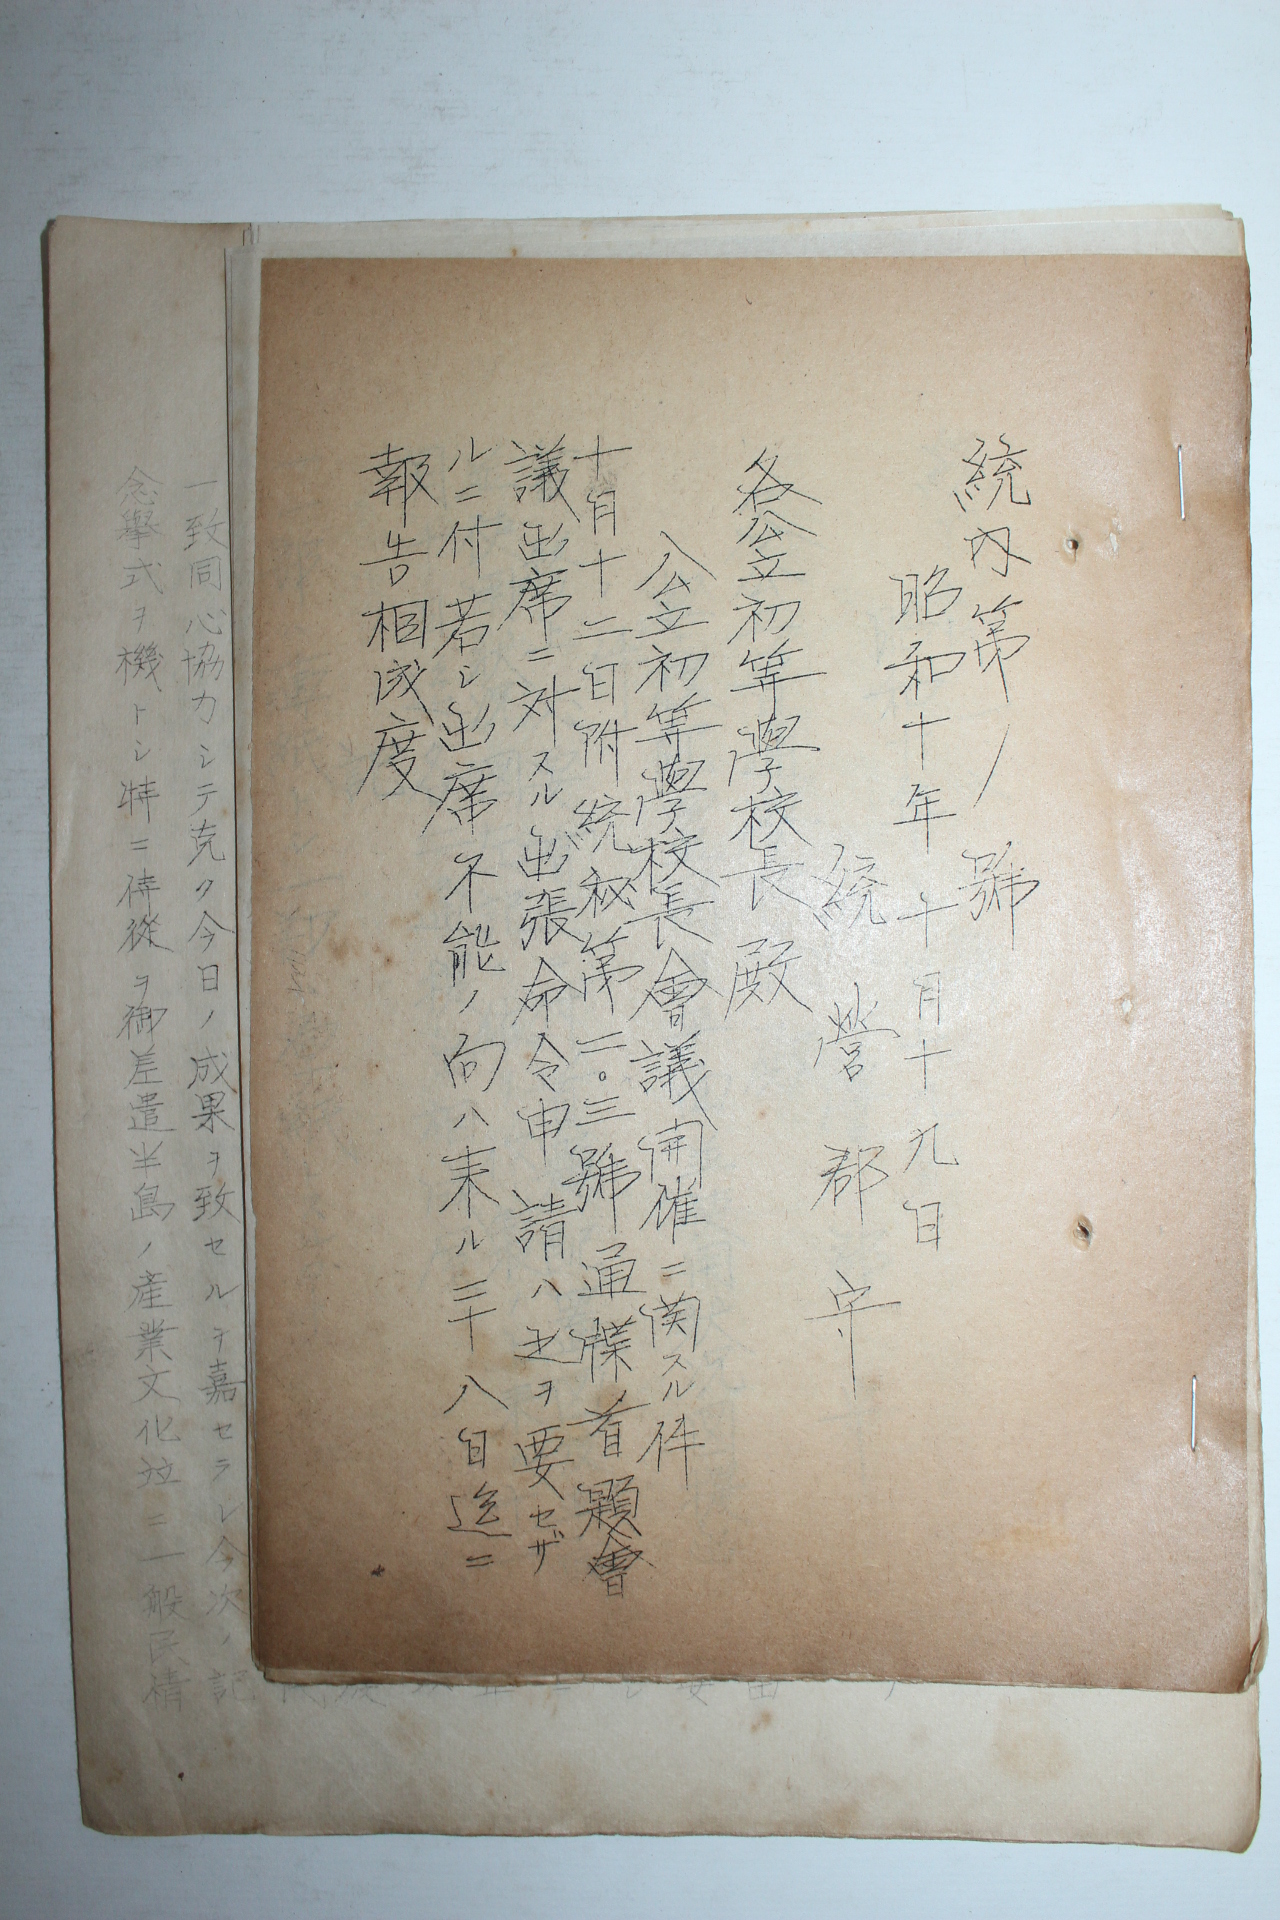 統内第ノ號
昭和十年十月十九日
統營郡守
各公立初等學校長殿
公立初等學校長會議開催ニ関スル件
十月十二日附統秘第二〇三號通牒ノ首題會
議出席ニ対スル出張命令申請ハ之ヲ要セザ
ルニ付若シ出席不能ノ向ハ来ル二十八日迄ニ
報告相成度
一致同心協力シテ克ク今日ノ成果ヲ致セルヲ嘉セラレ今次ノ記
念擧式ヲ機トシ特ニ侍從ヲ御差遣半島ノ産業文化竝ニ一般民情